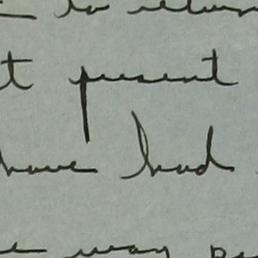 to return
present
have had
way